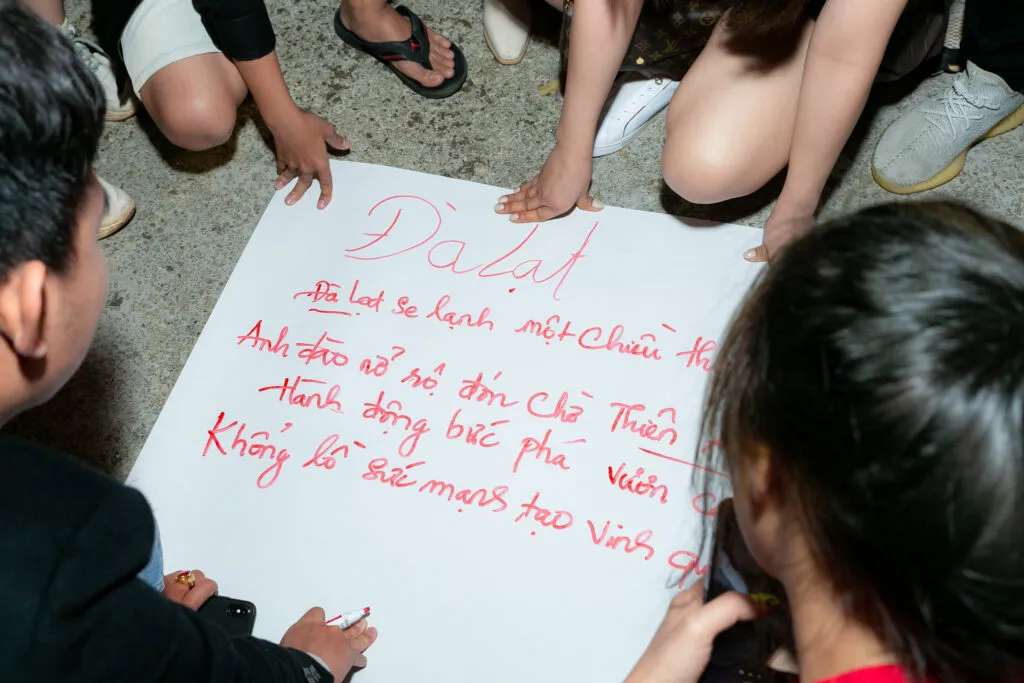 Đà Lạt
Đà Lạt se lạnh một chiều
Anh đào nở rộ đón chờ Thiên
Hành động bức phá vươn
Khổng lồ sức mạnh tạo Vinh